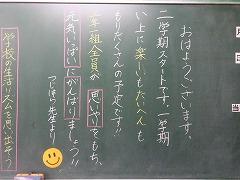 おはようございます。
二学期スタートです。一学期
以上に楽しい、たいへんも
もりだくさんの予定です!!
全員が思いやりをもち、
元気いっぱいにがんばりましょう!!
つじはら先生より
学校の生活リズムを思い出そう
月
日